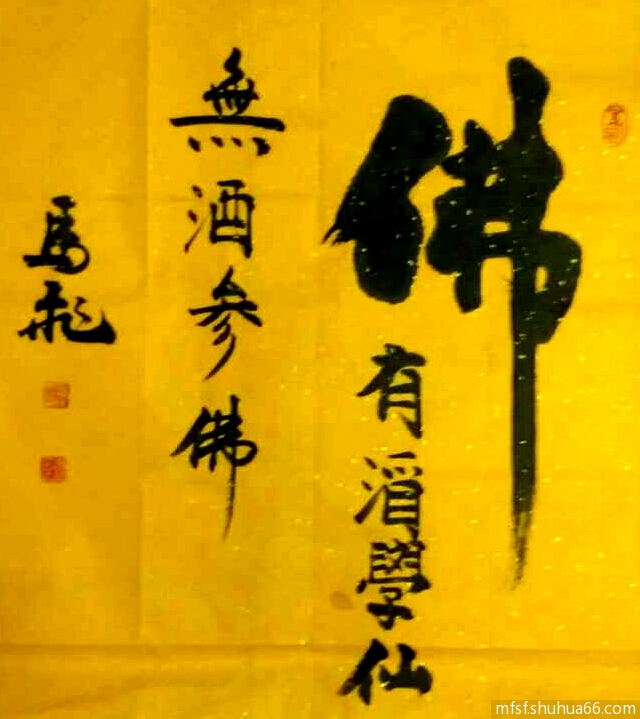 佛
有酒學仙
無酒参佛
馬飛
mfsf.shuhua66.com